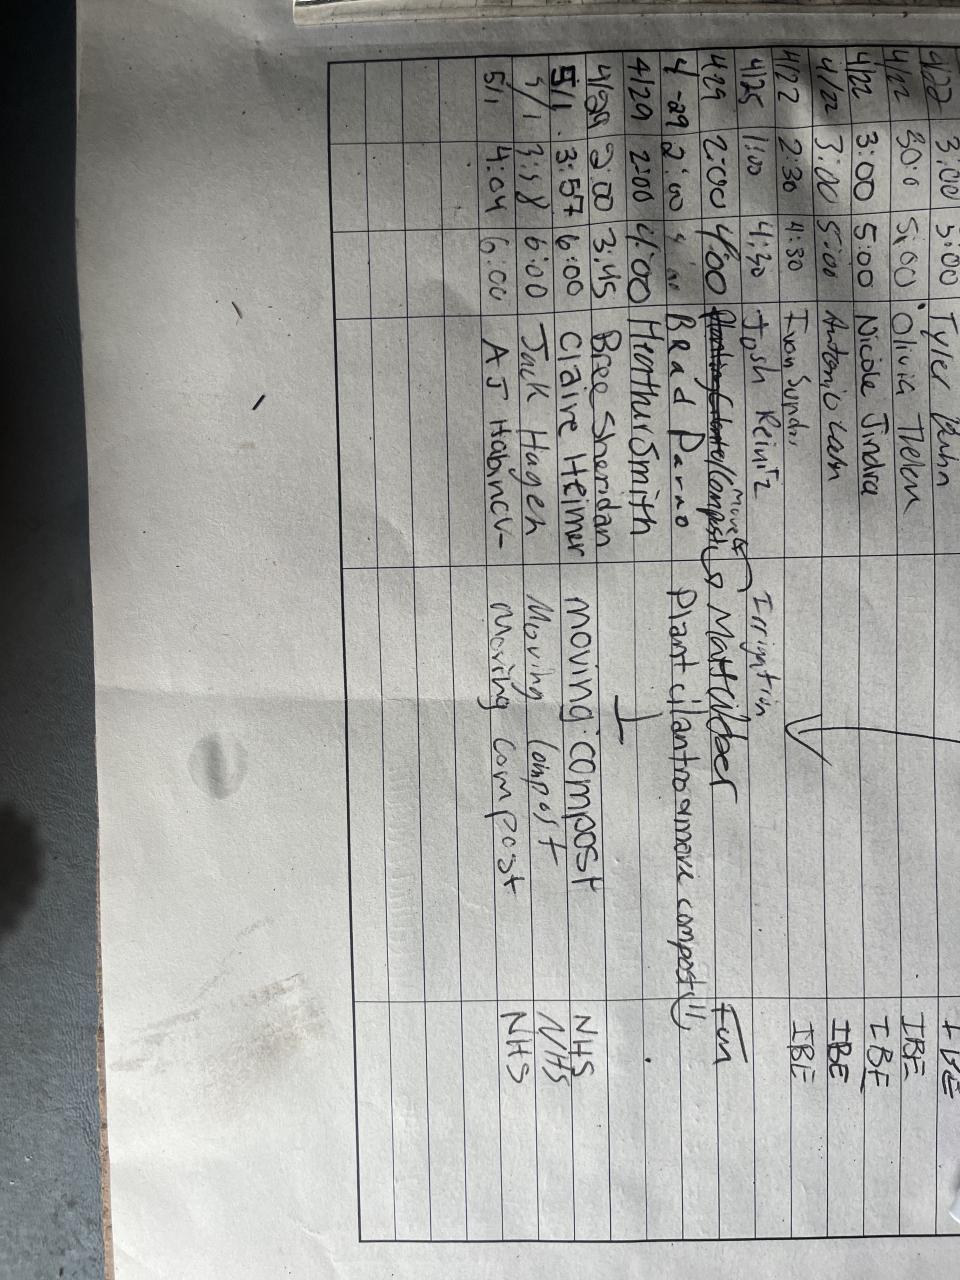 4/22 3:00 5:00 Tyler IBE
4/22 30:0 5:00 Olivia Thelen IBE
4/22 3:00 5:00 Nicole Jindra IBE
4/22 3:00 5:00 Antonio IBE
4/22 2:30 4:30 Ivan IBE
4/25 1:00 4:30 Josh Reinitz Irrigation
4/29 2:00 4:00 Move Fun
4-29 2:00 Brad Parno Plant cilantro move compost
4/29 2:00 4:00 Heathur Smith
4/29 2:00 3:45 Bree Sheridan
5/1 3:57 6:00 Claire Heimer moving compost NHS
5/1 3:58 6:00 Jack Hagen Moving Compost NHS
5/1 4:04 6:00 AJ moving compost NHS